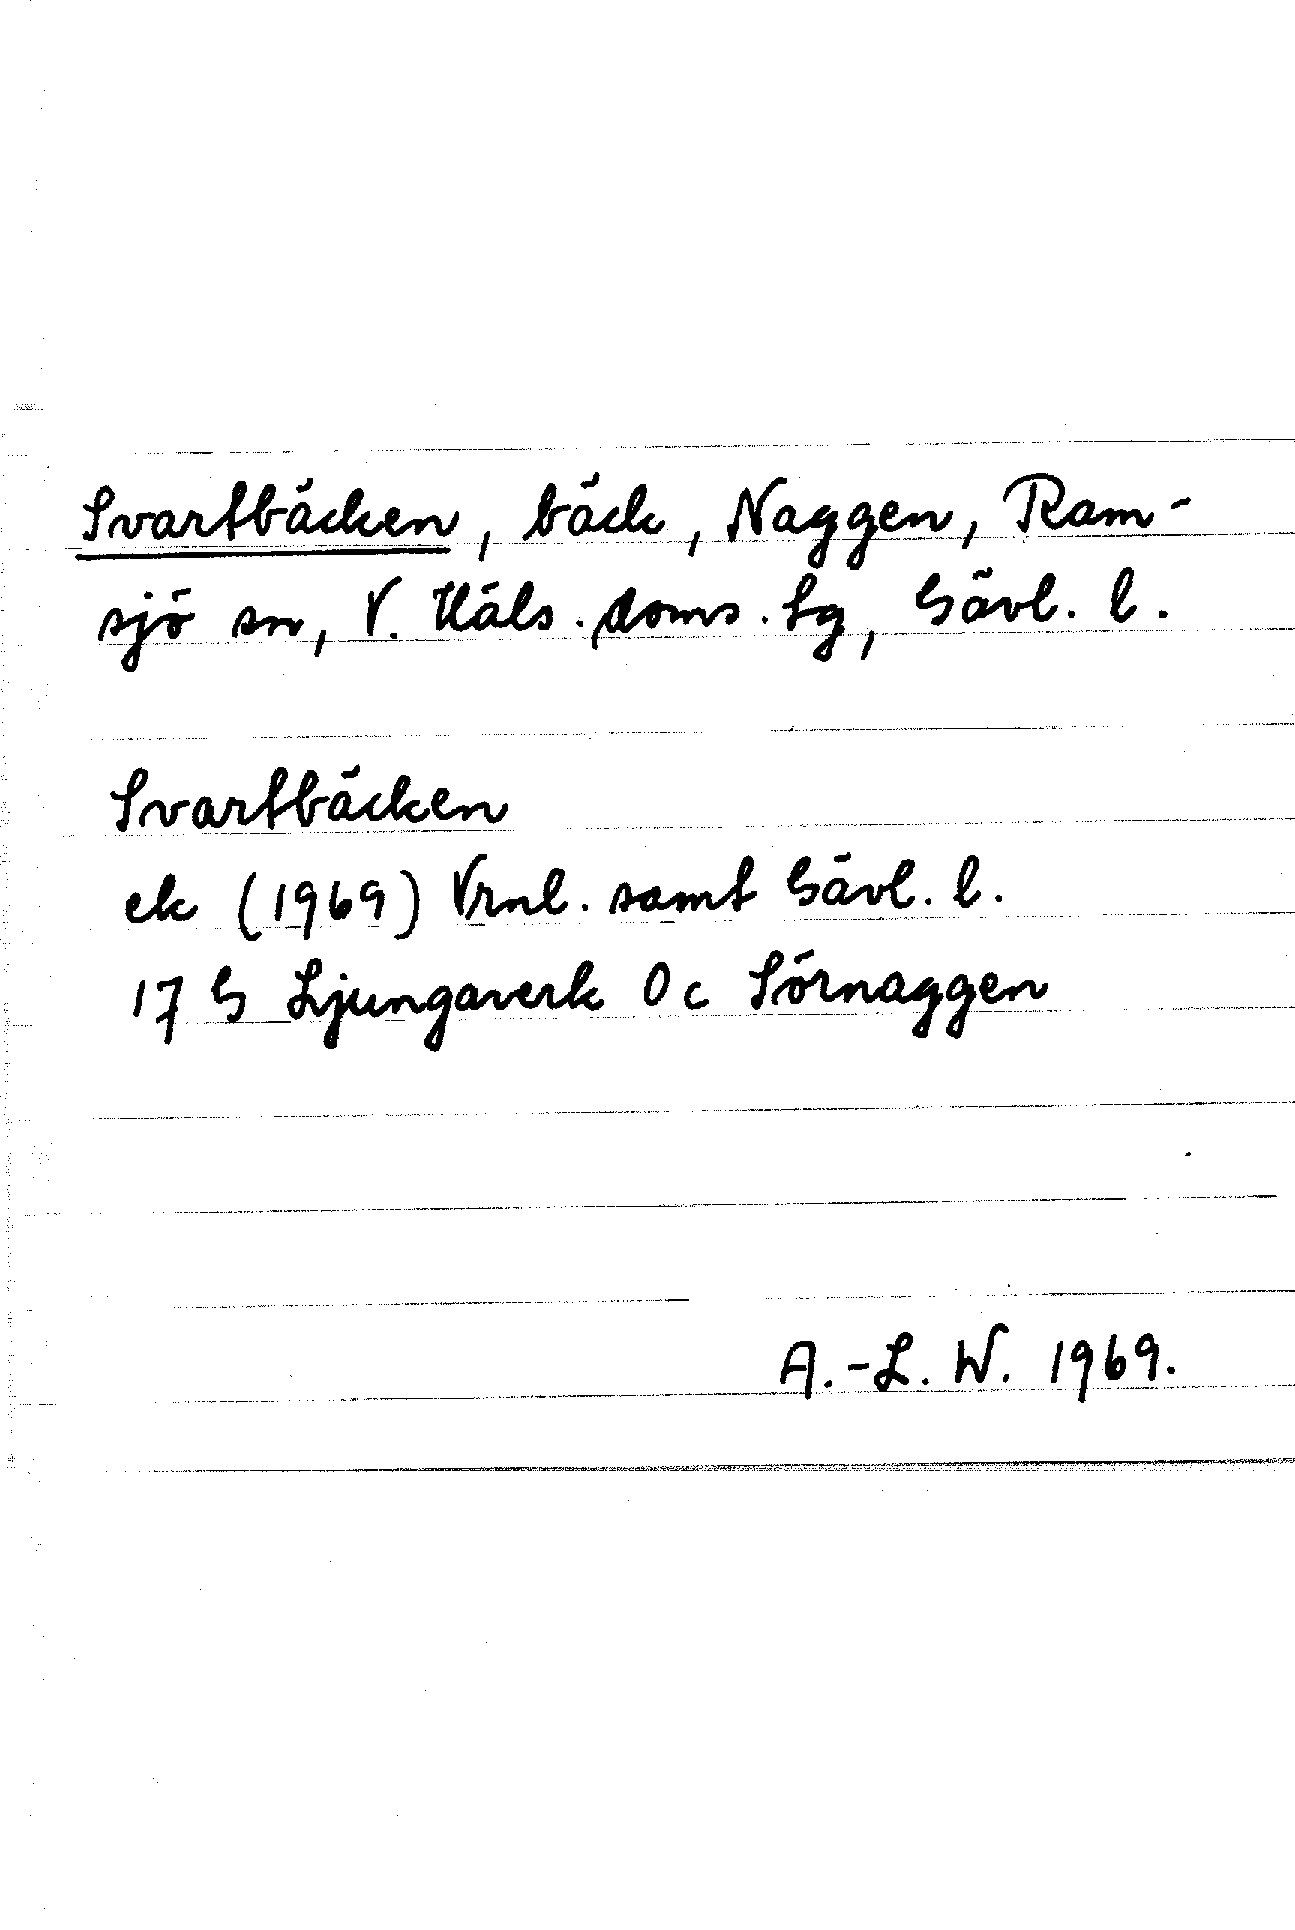 Svartbäcken, bäck, Naggen, Ram-
sjö sn, V. Häls. doms. tg, Gävl. l.
Svartbäcken
ek (1969) Vrnl. samt Gävl. l.
17 G Ljungaverk 0 c Sörnaggen
A.-L. W. 1969.